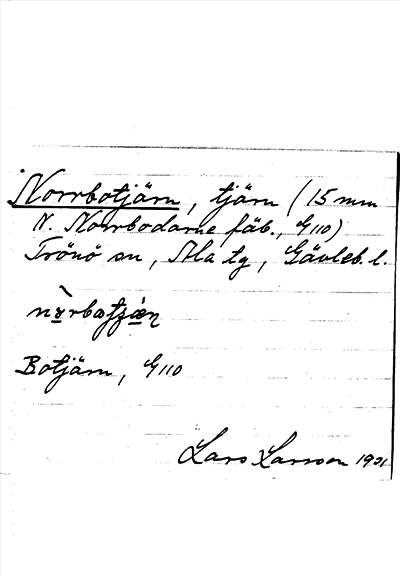 Norrbotjärn, tjärn (15 mm
N. Norrbodarne fäb., G110)
Trönö sn, Ala tg, Gävleb. l.
Botjärn, G110
Lars Larsson 1921